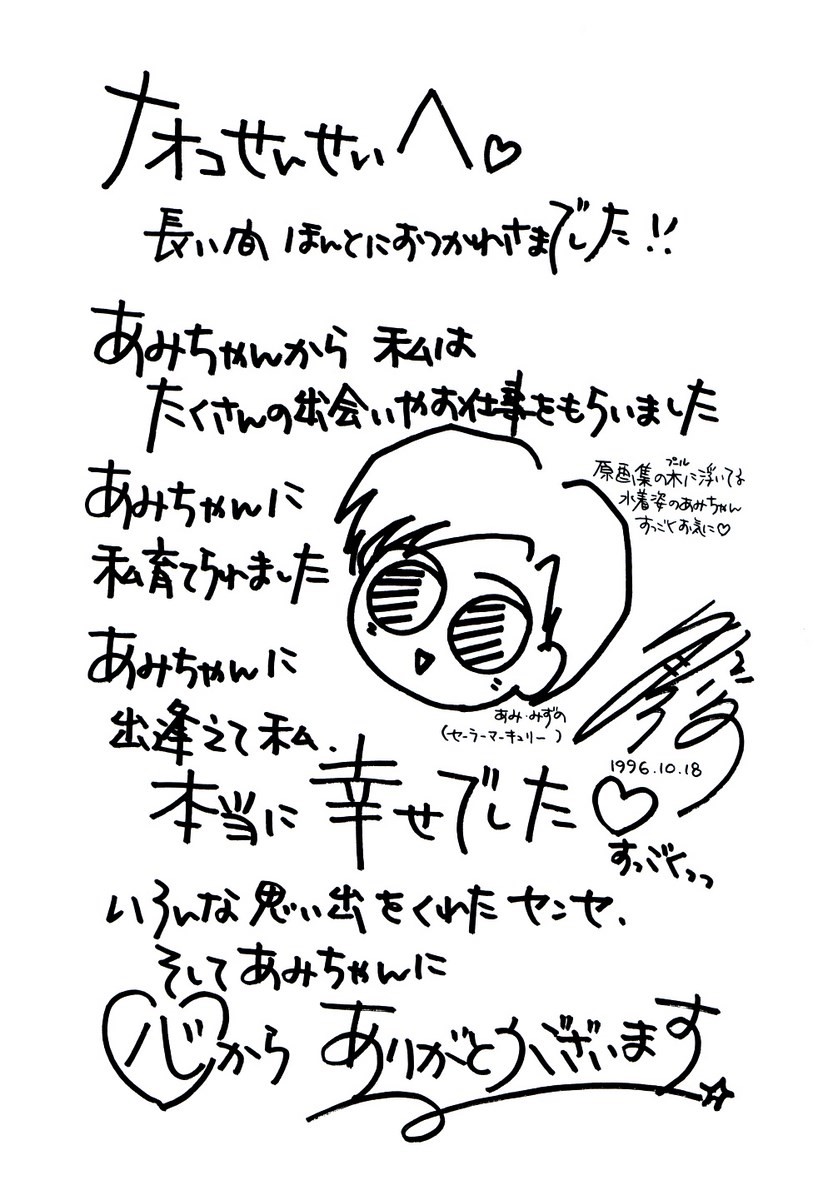 ナオコせんせいへ♡
長い間 ほんとにおつかれさまでした!!
あみちゃんから 私は
たくさんの出会いやお仕事をもらいました
あみちゃんに
私育てられました
原画集の木に浮いてる
プール
水着姿のあみちゃん
すっごくお気に♡
あみちゃんに
出逢えて私、
あみ・みずの
(セーラーマーキュリー)
1996.10.18
本当に幸せでした♡
すっごくっっ
いろんな思い出をくれたセンセ、
そしてあみちゃんに
心から ありがとうございます☆